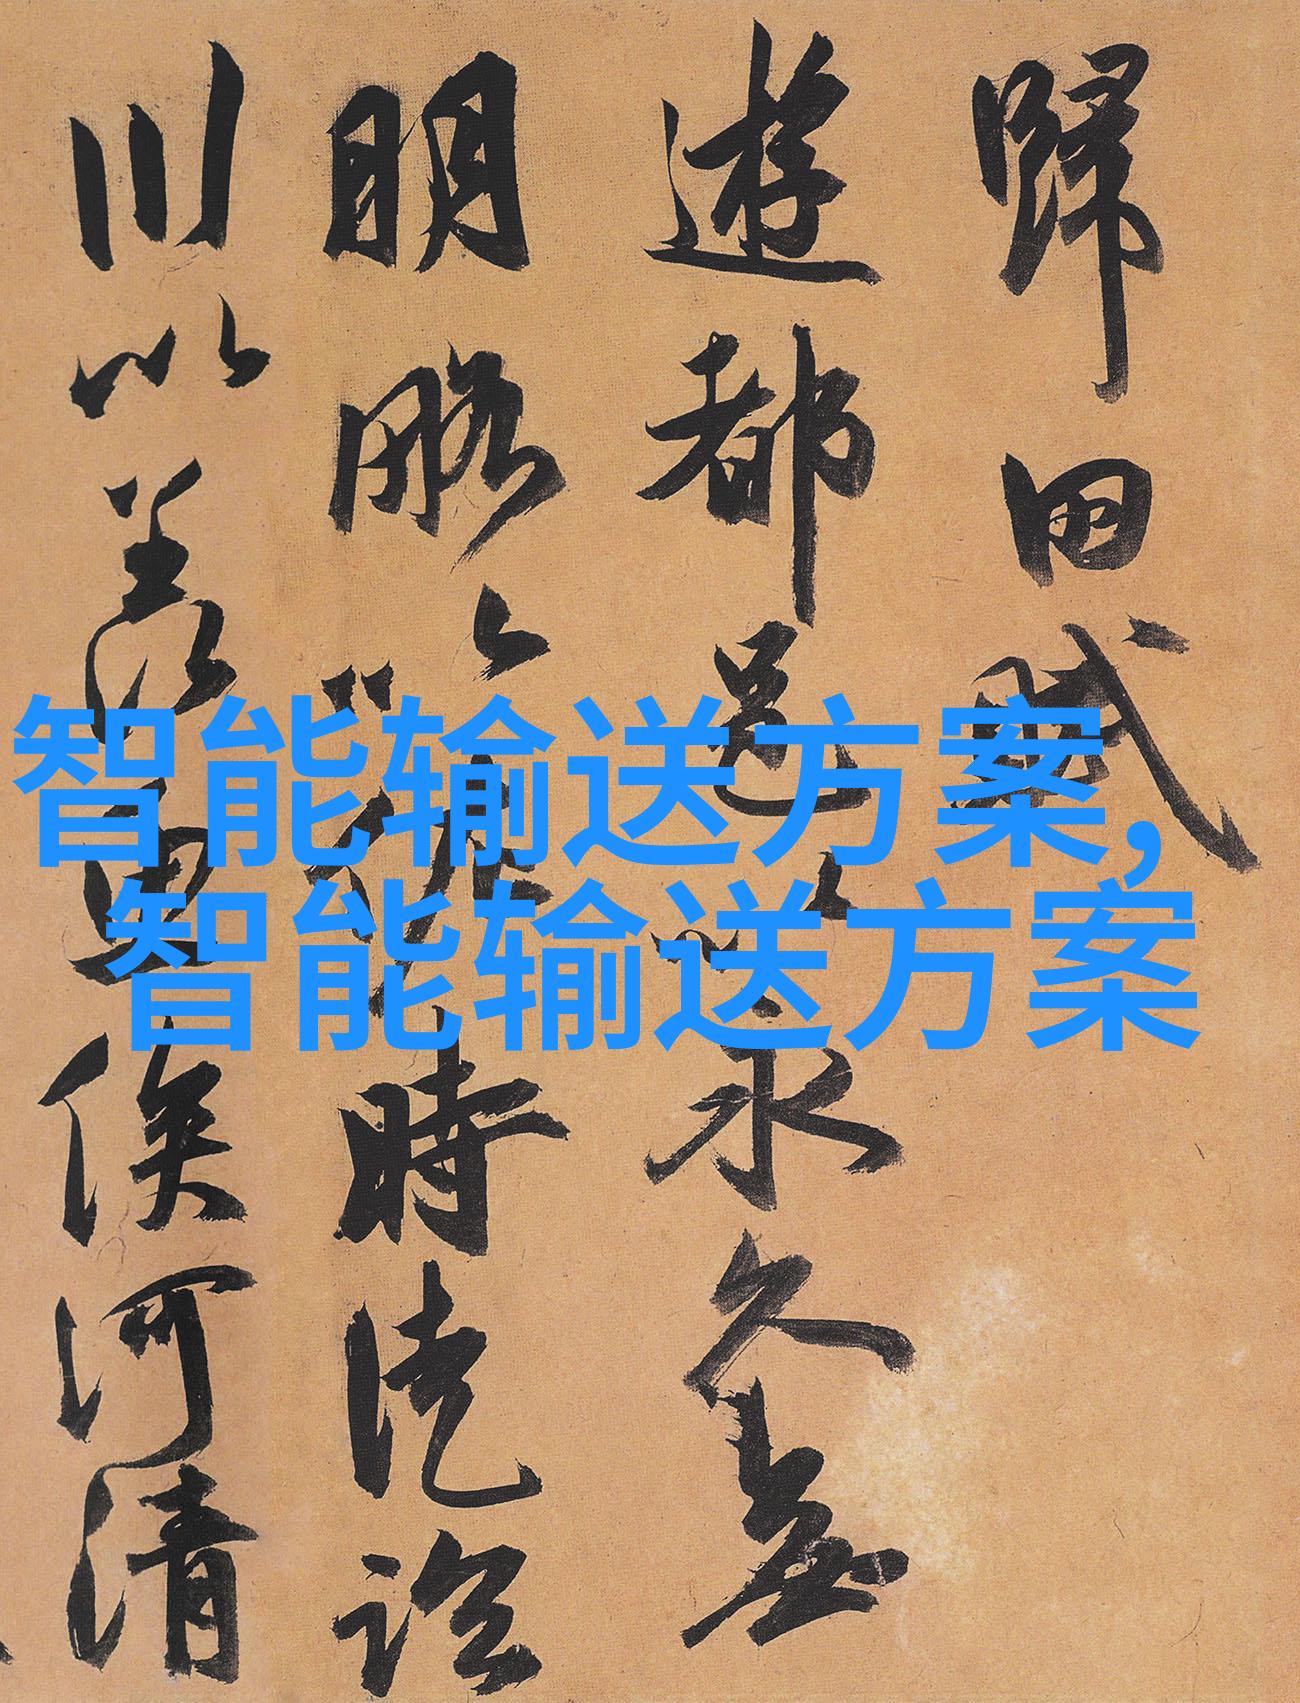 歸田賦
遊都邑以永久無
明略以佐時徒臨
川以羨魚俟河清
智能输送方案,
智能输送方案